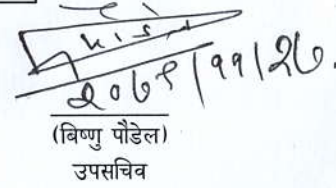 २०७९/११/२७.
(बिष्णु पौडेल)
उपसचिव